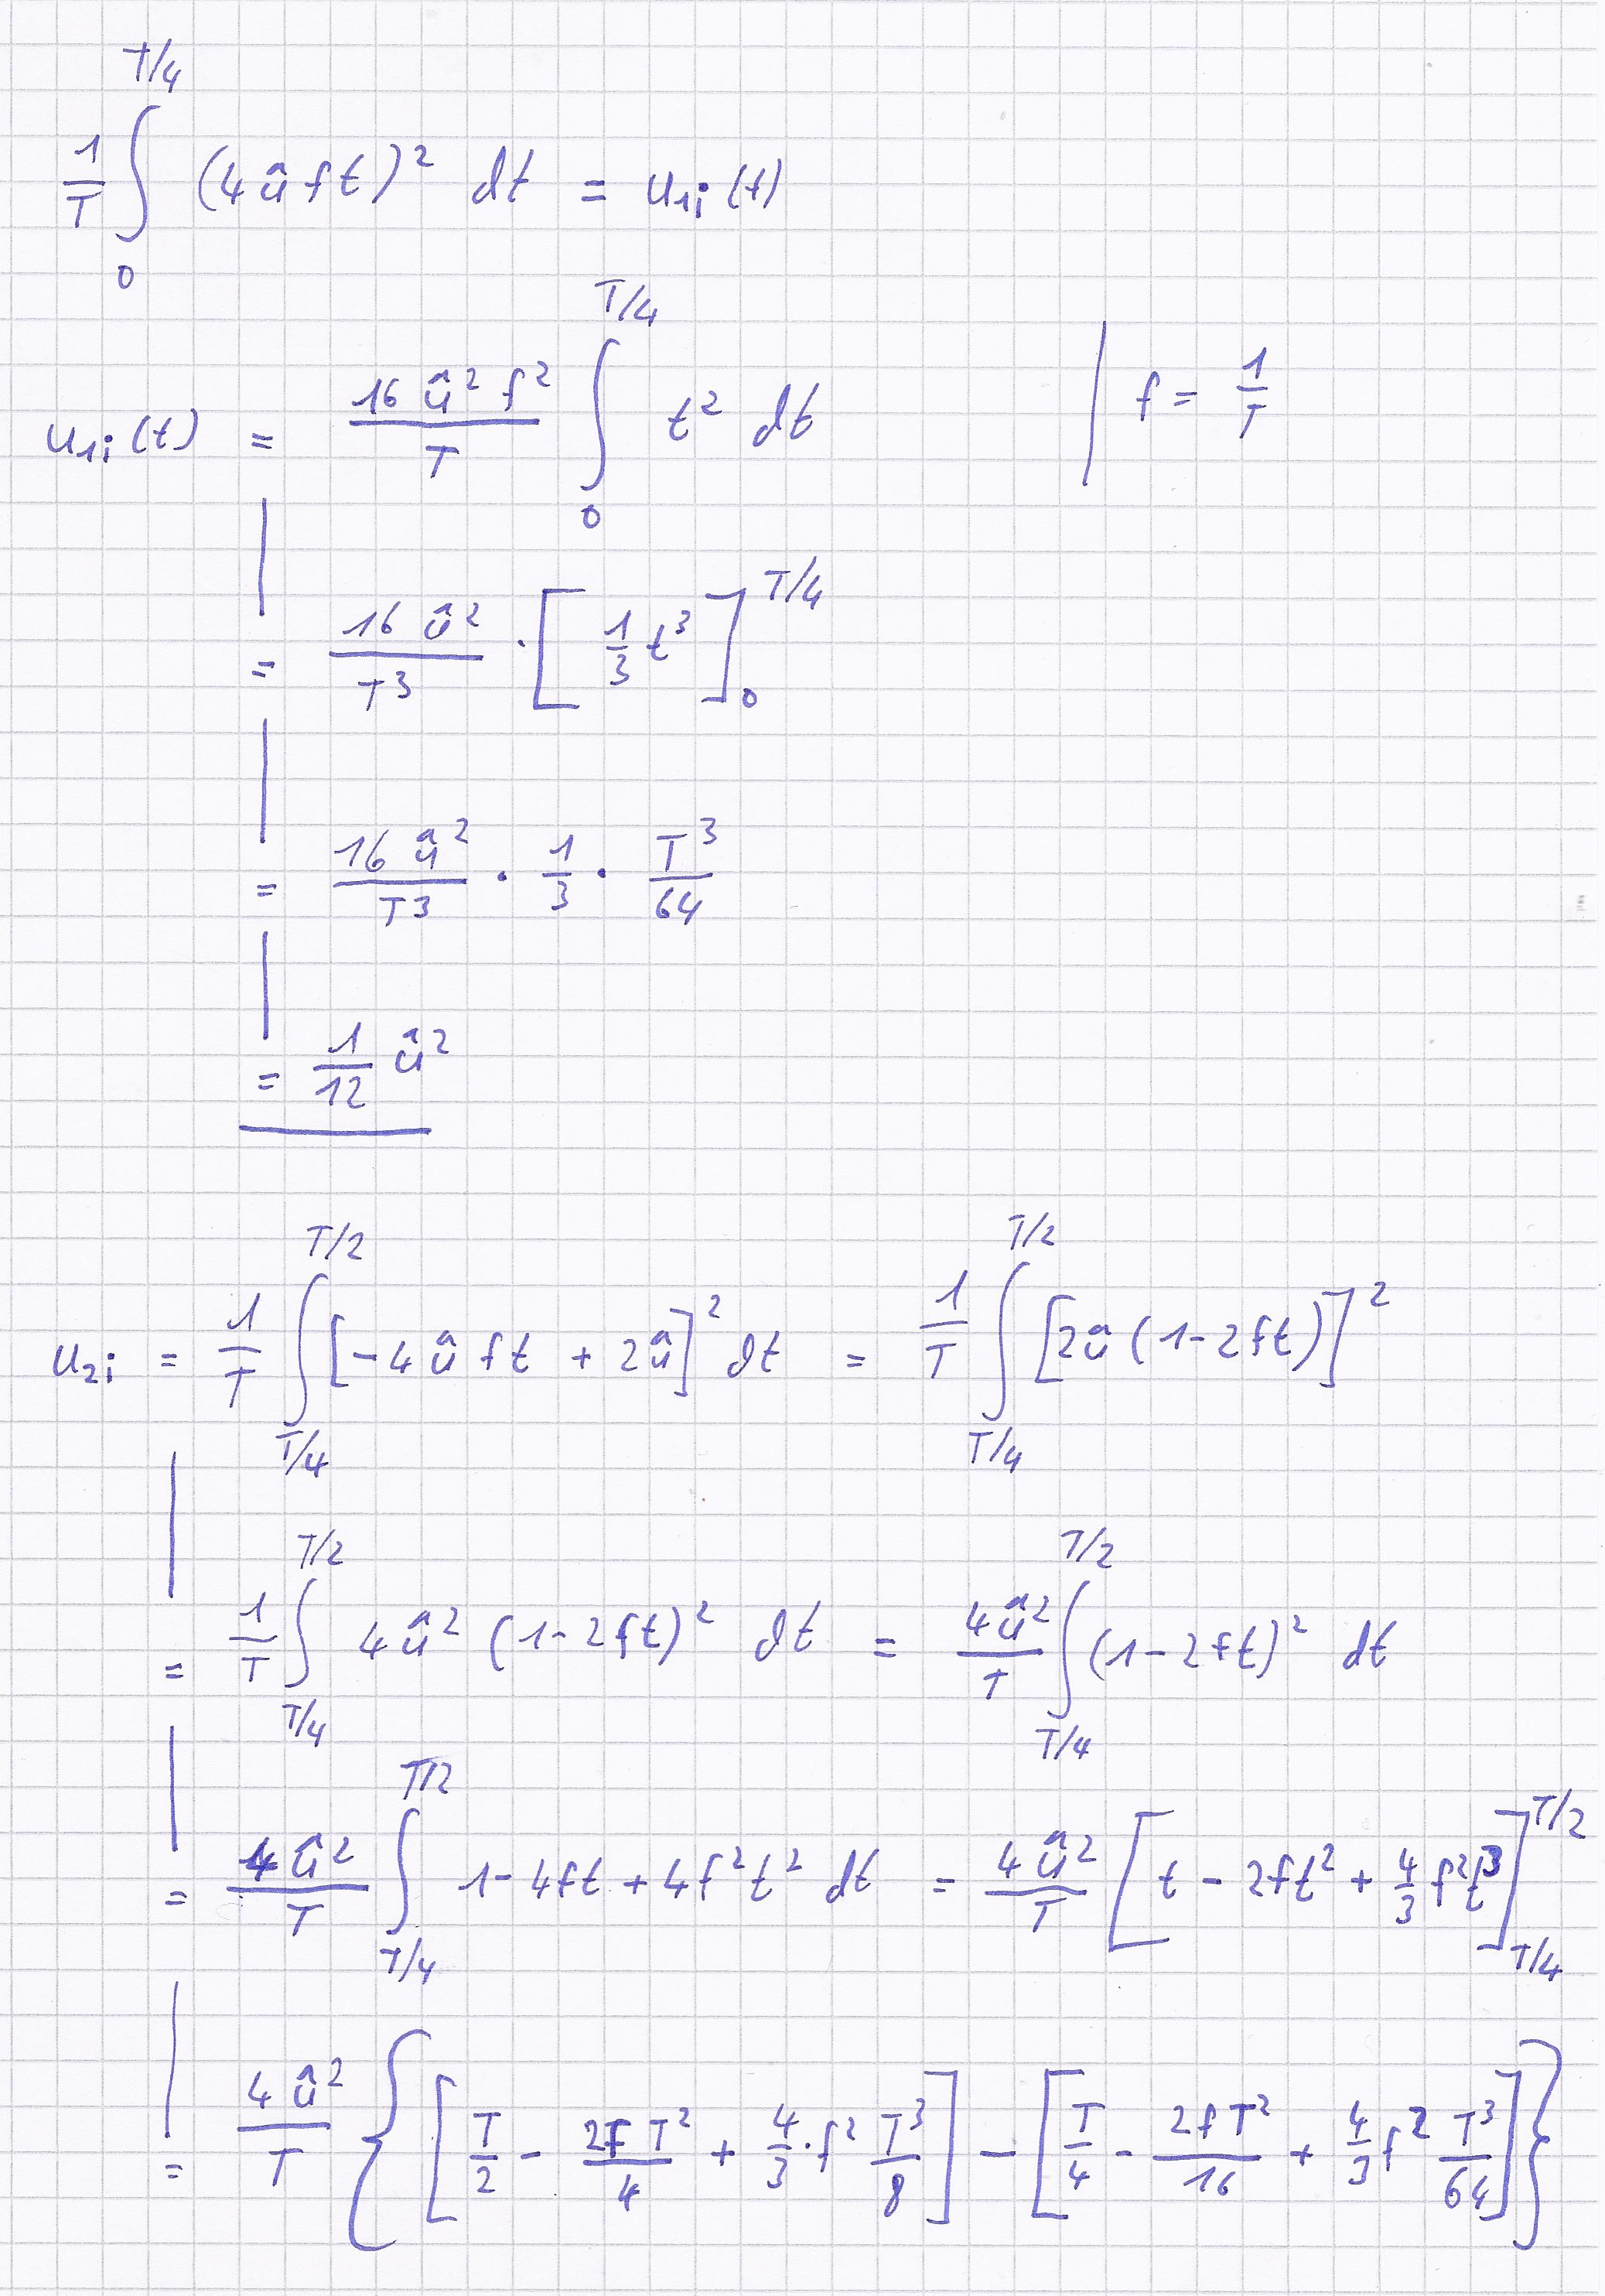 1/T ∫₀^{T/4} (4 û f t)² dt = u₁ᵢ(t)
u₁ᵢ(t) = 16 û² f² / T ∫₀^{T/4} t² dt | f = 1/T
= 16 û² / T³ · [1/3 t³]₀^{T/4}
= 16 û² / T³ · 1/3 · T³/64
= 1/12 û²
u₂ᵢ = 1/T ∫_{T/4}^{T/2} [-4 û f t + 2û]² dt = 1/T ∫_{T/4}^{T/2} [2û (1-2ft)]²
= 1/T ∫_{T/4}^{T/2} 4û² (1-2ft)² dt = 4û²/T ∫_{T/4}^{T/2} (1-2ft)² dt
= 4û²/T ∫_{T/4}^{T/2} 1-4ft+4f²t² dt = 4û²/T [t - 2ft² + 4/3 f²t³]_{T/4}^{T/2}
= 4û²/T {[T/2 - 2fT²/4 + 4/3·f² T³/8] - [T/4 - 2fT²/16 + 4/3 f² T³/64]}